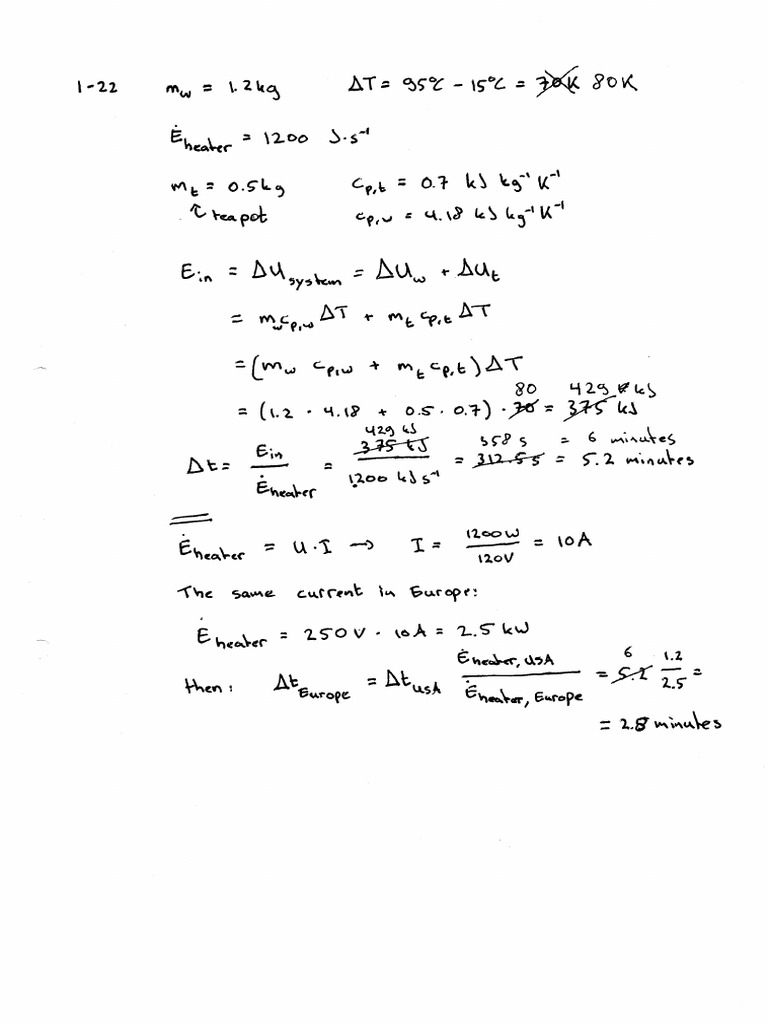 1-22 m_w = 1.2kg ΔT = 95°C - 15°C = 70K 80K
Ė_heater = 1200 J·s⁻¹
m_t = 0.5kg c_p,t = 0.7 kJ kg⁻¹ K⁻¹
↑ teapot c_p,w = 4.18 kJ kg⁻¹ K⁻¹
E_in = ΔU_system = ΔU_w + ΔU_t
= m_w c_p,w ΔT + m_t c_p,t ΔT
= (m_w c_p,w + m_t c_p,t) ΔT
80 429 kJ
= (1.2 · 4.18 + 0.5 · 0.7) · 70 = 375 kJ
429 kJ 358 s = 6 minutes
Δt = E_in / Ė_heater = 375 kJ / 1.200 kJ s⁻¹ = 312.5 s = 5.2 minutes
Ė_heater = U·I → I = 1200W / 120V = 10A
The same current in Europe:
Ė_heater = 250V · 10A = 2.5 kW
then: Δt_Europe = Δt_USA Ė_heater, USA / Ė_heater, Europe = 5.2 6 1.2 / 2.5 =
= 2.8 minutes